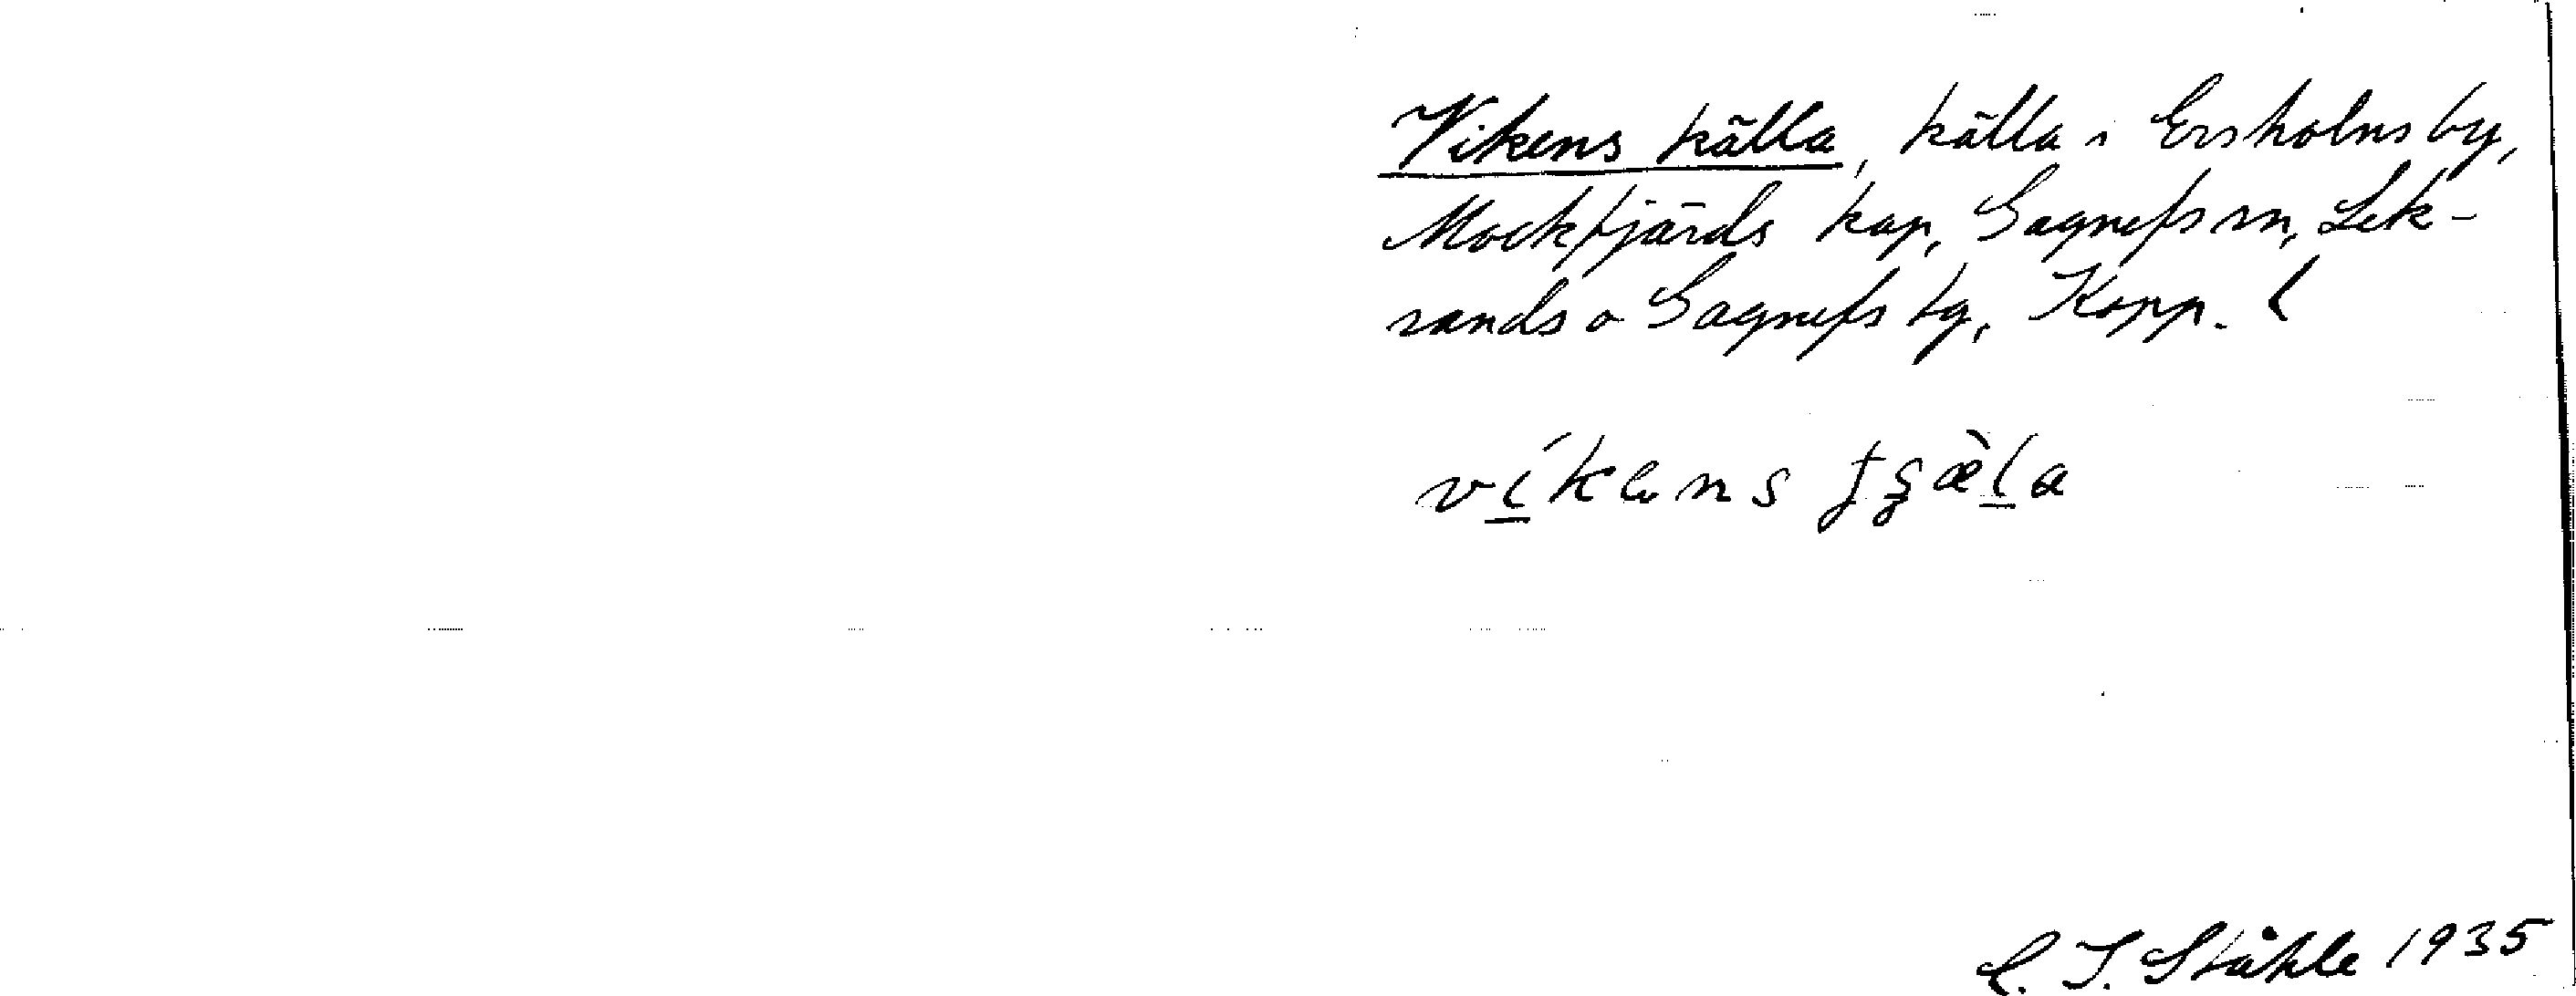 Vikens källa, källa i Ersholns by,
Mockfjärds kap, Gagnefs sn, Lek-
sands o Gagnefs tg, Kopp. l
C. I. Ståhle 1935